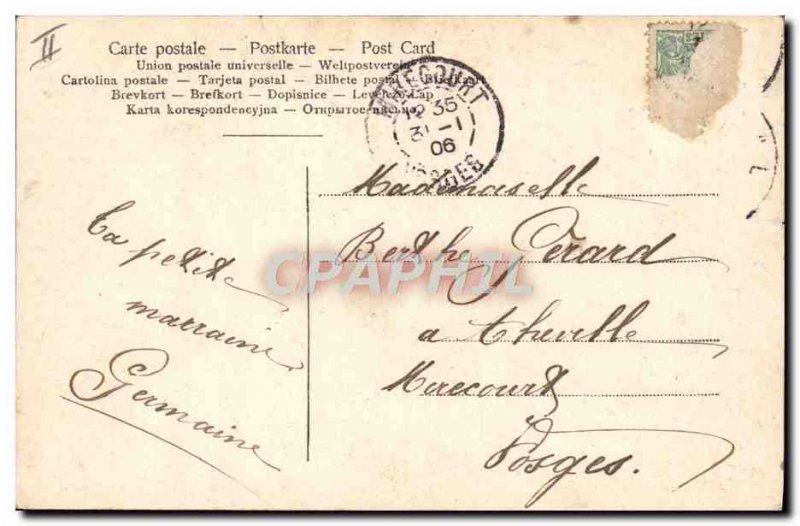 II
Carte postale — Postkarte — Post Card
Union postale universelle — Weltpostverein
Cartolina postale — Tarjeta postal — Bilhete postal — Briefkaart
Brevkort — Brefkort — Dopisnice — Levelező-Lap
Karta korespondencyjna — Открытое письмо
MIRECOURT
12 35
31 -1
06
VOSGES
Mademoiselle
Berthe Gérard
a Theville
Mirecourt
Vosges.
Ta petite
marraine
Germaine
CPAPHIL